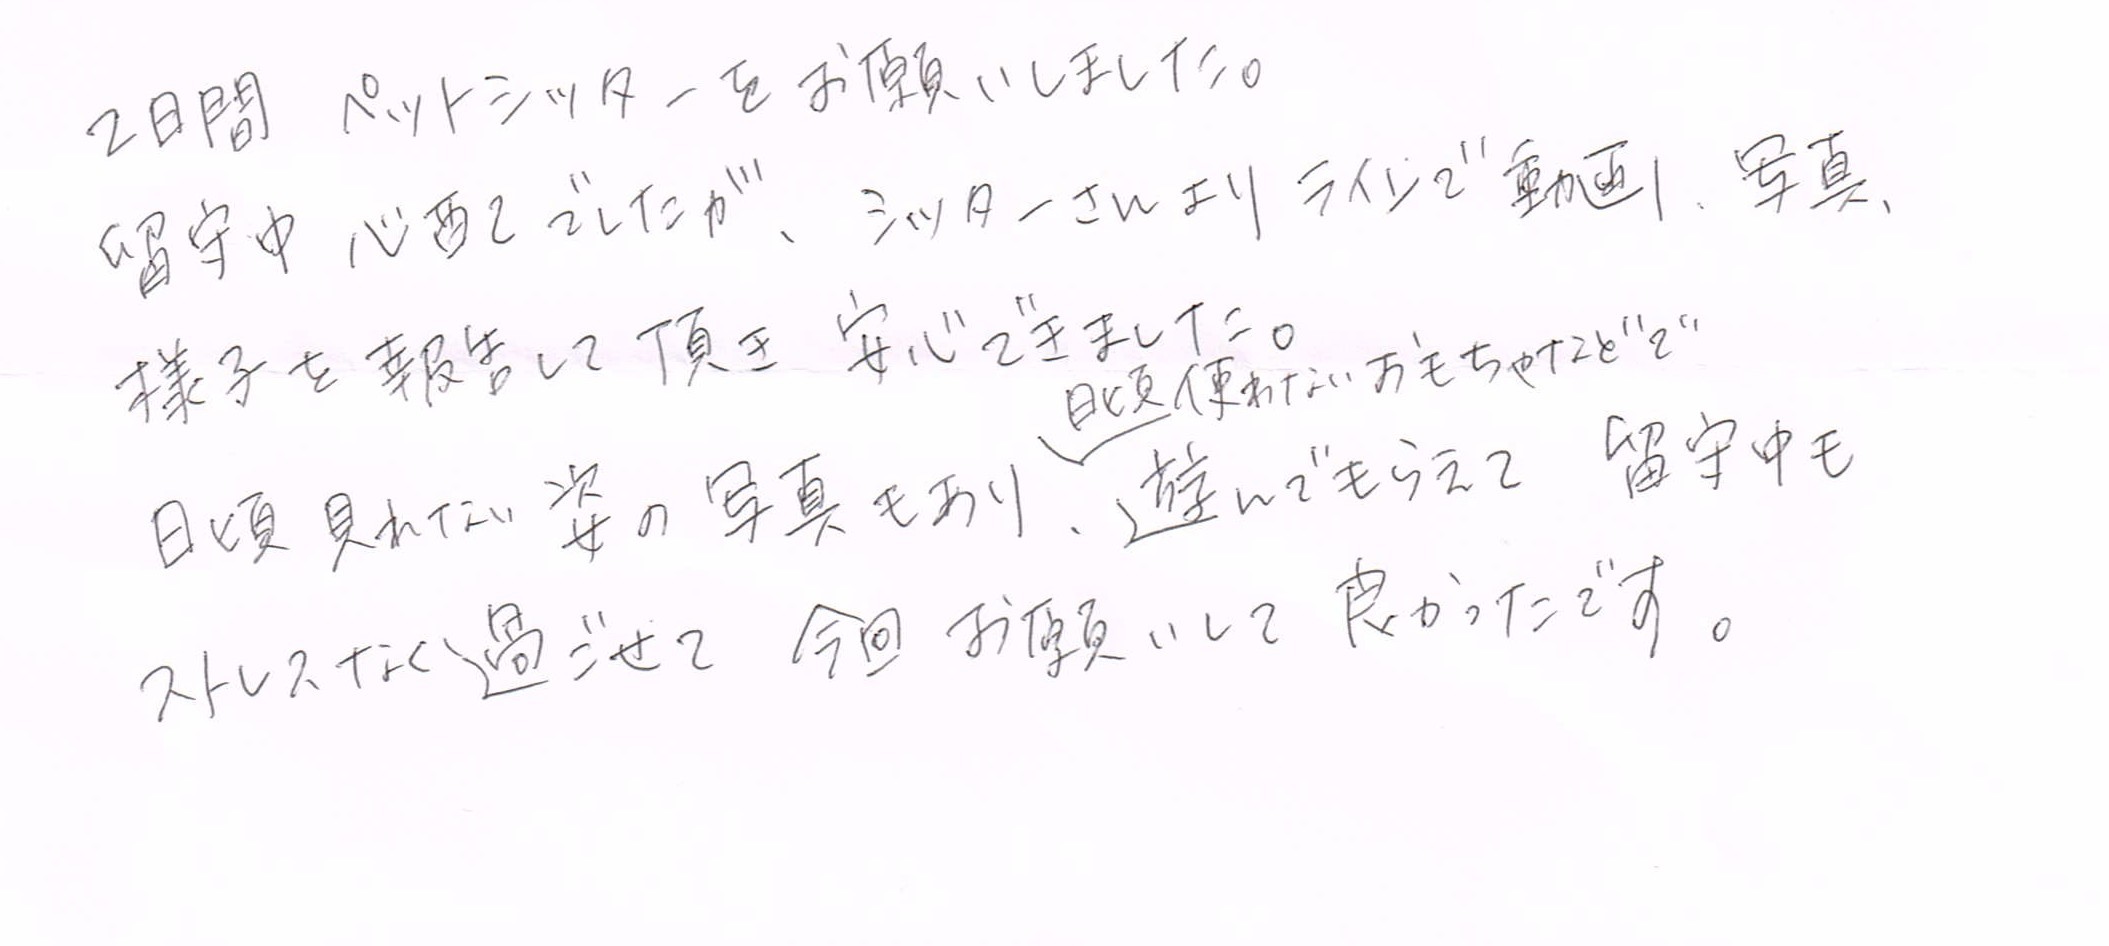 2日間 ペットシッターをお願いしました。
留守中 心配でしたが、シッターさんより ラインで動画、写真、
様子を報告して頂き 安心できました。
日頃使わないおもちゃなどで
日頃見れない姿の写真もあり、遊んでもらえて 留守中も
ストレスなく過ごせて 今回 お願いして 良かったです。